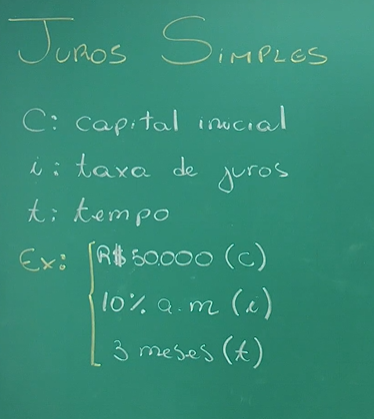 JUROS SIMPLES
C: capital inicial
i: taxa de juros
t: tempo
Ex: R$50.000 (c)
10% a.m (i)
3 meses (t)